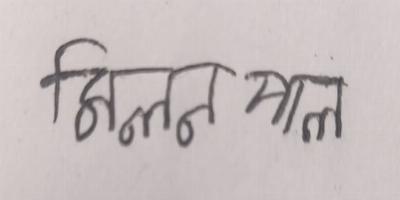 মিলন পাল